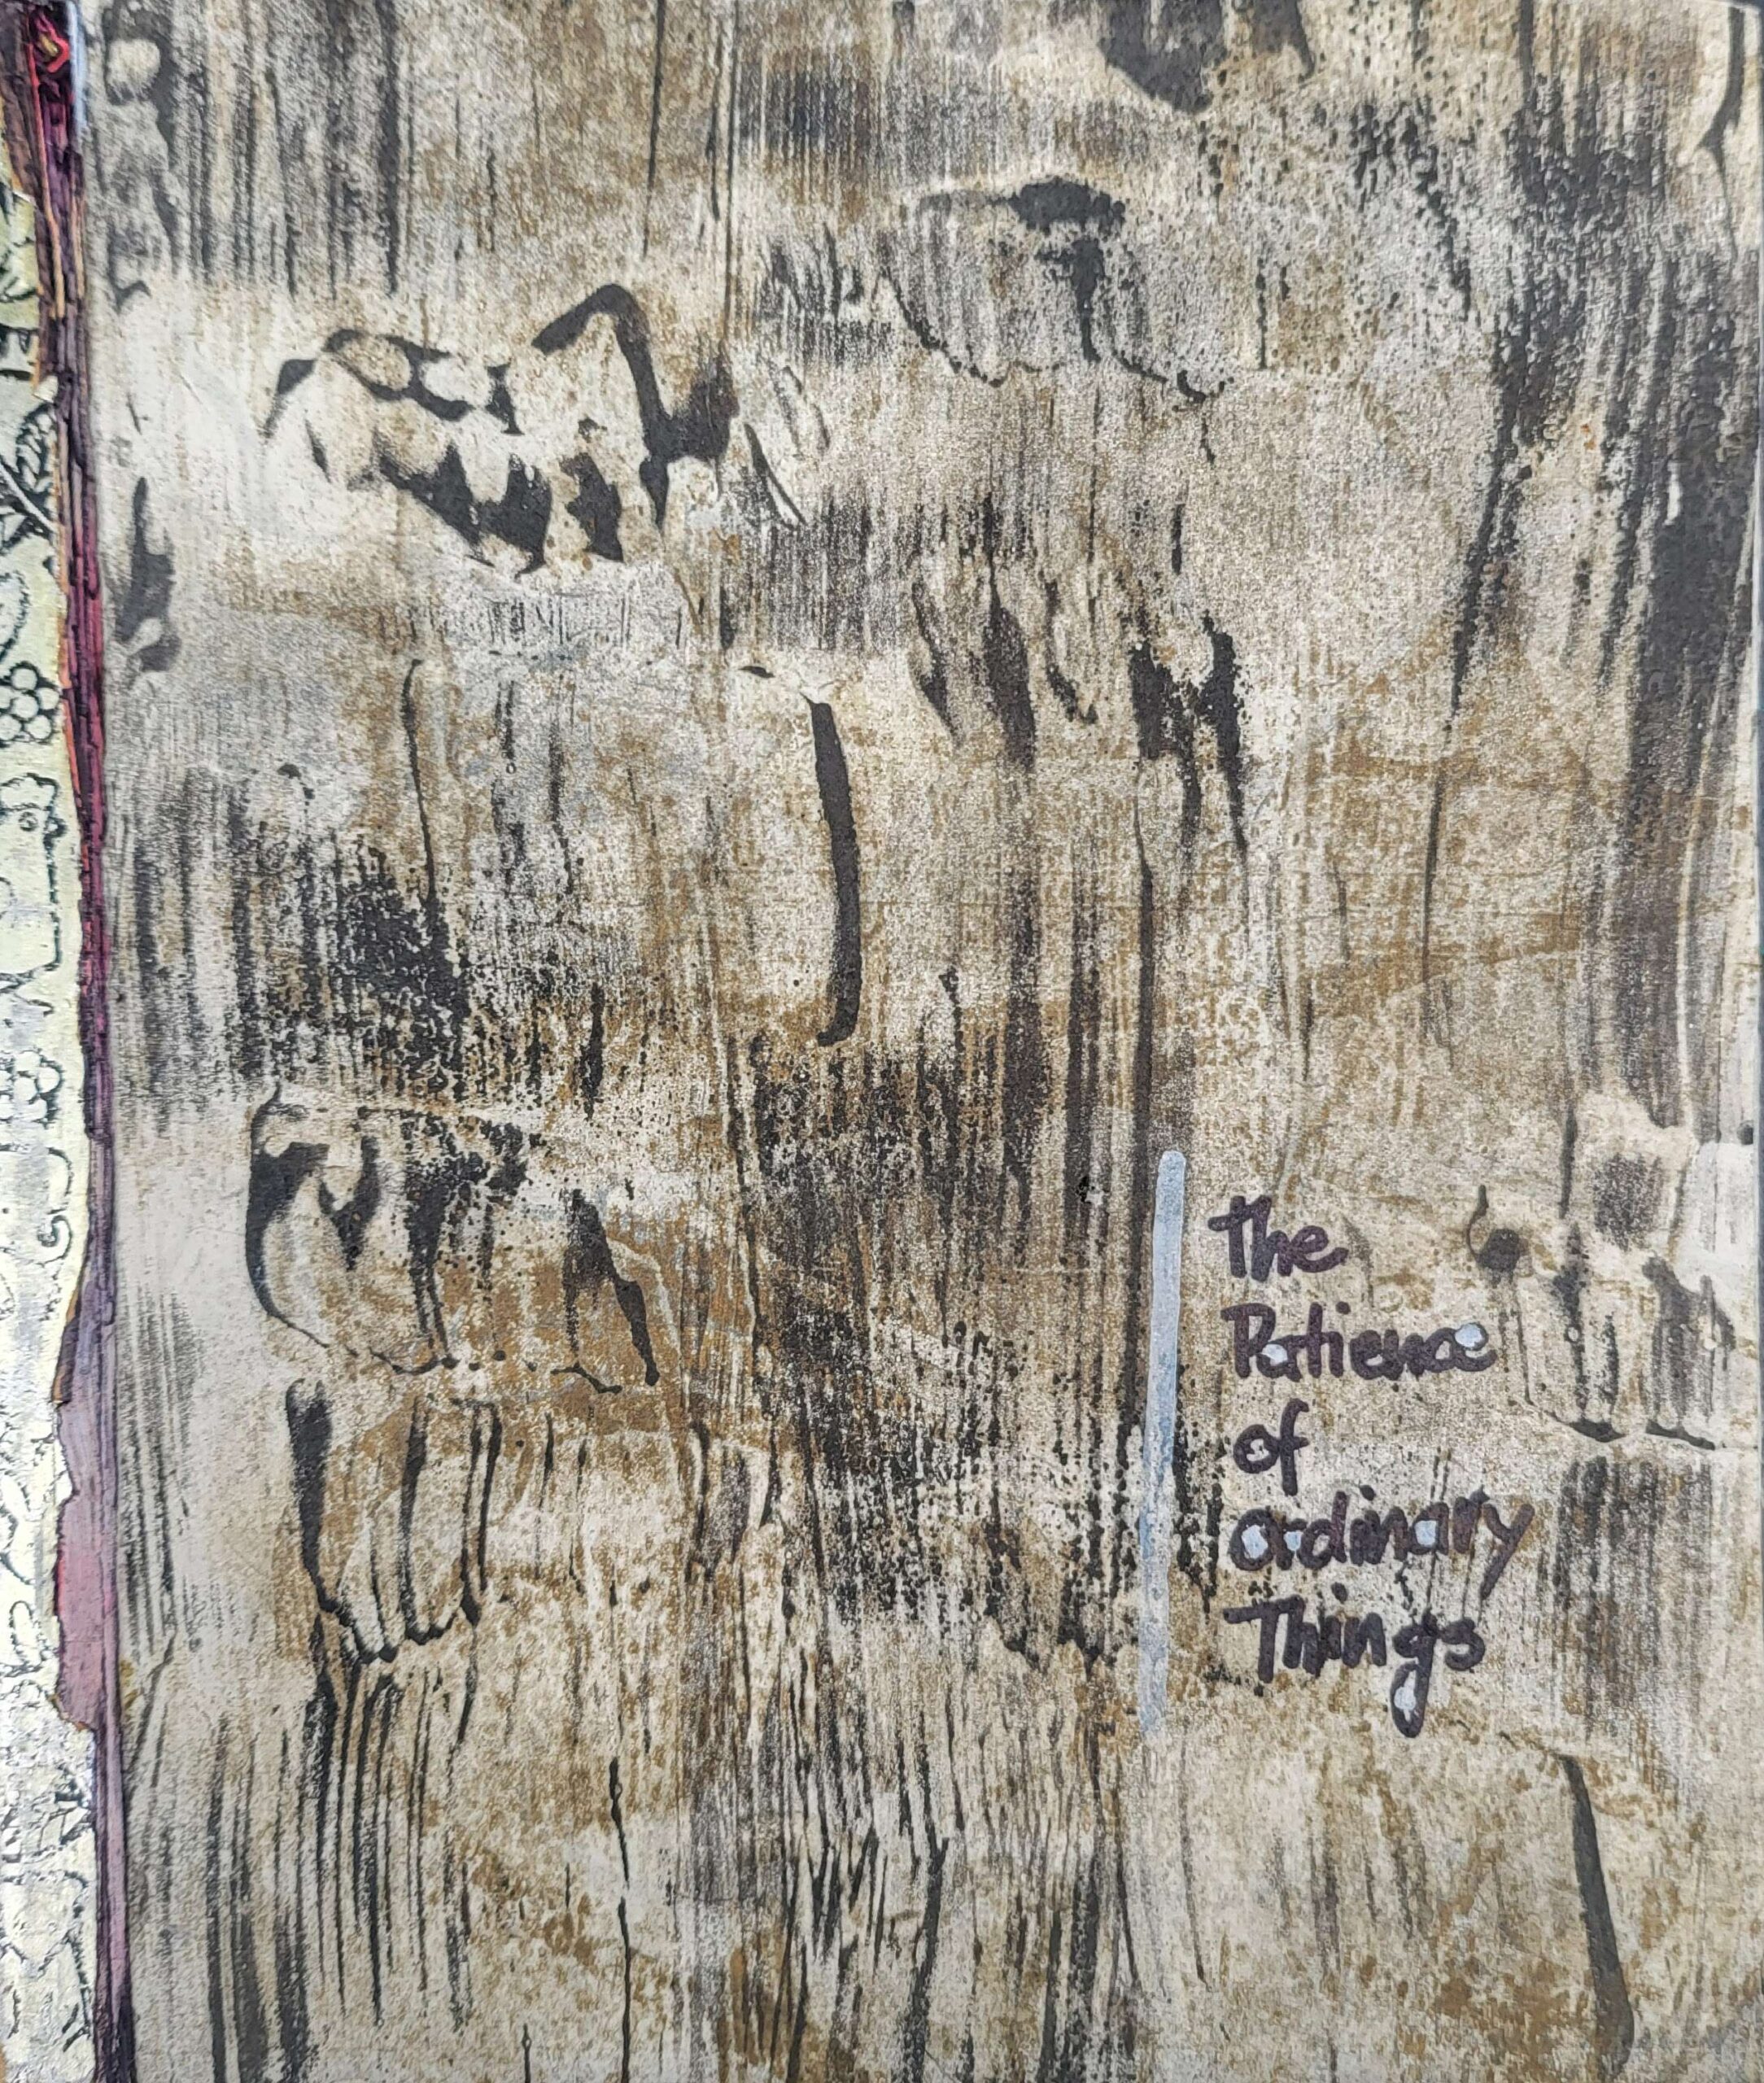 The
Patience
of
ordinary
Things